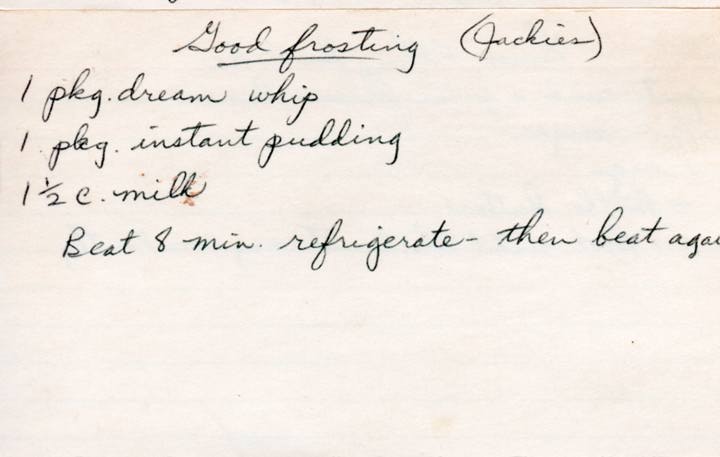 Good frosting (Jackies)
1 pkg. dream whip
1 pkg. instant pudding
1 ½ c. milk
Beat 8 min. refrigerate - then beat agai